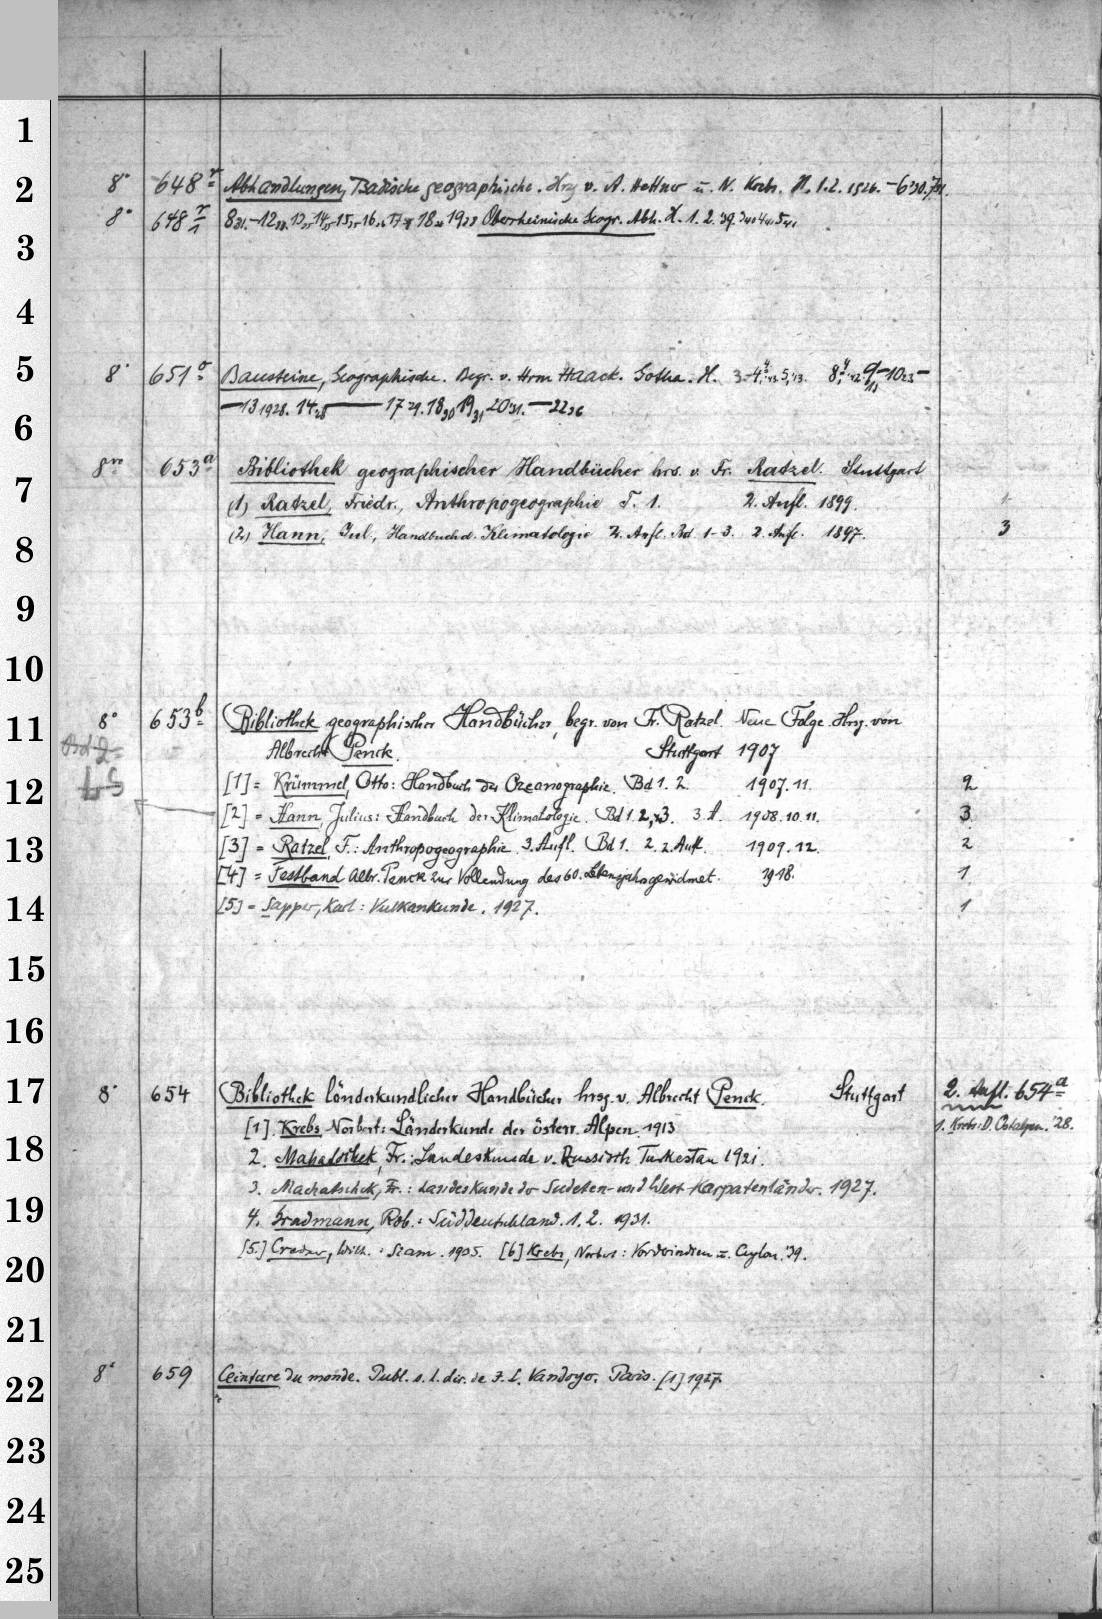 1
2
3
4
5
6
7
8
9
10
11
12
13
14
15
16
17
18
19
20
21
22
23
24
25
8° 648 r Abhandlungen, Badische geographische. Hrg v. A. Hettner u. N. Krebs. H. 1.2. 1926. - 6 30. 7 31.
8° 648 r/1 8 31. - 12 13 14 15 16 17 18 19 Oberrheinische Geogr. Abh. H. 1. 2. 39. 3 40 4 41 5 41.
8° 651 Bausteine, Geographische. Begr. v. Hrm Haack. Gotha. H. 3.-4. 5. 13. 8. 9- 10 23 -
- 13 1928. 14 28 - 17 29. 18 30 19 31 20 31. - 22 36
8vo 653 a Bibliothek geographischer Handbücher hrs. v. Fr. Ratzel. Stuttgart
(1) Ratzel, Friedr., Anthropogeographie T. 1. 2. Aufl. 1899.
(2) Hann, Jul., Handbuch d. Klimatologie 2. Aufl. Bd 1-3. 2. Aufl. 1897. 3
8° 653 b Bibliothek geographischer Handbücher, begr. von Fr. Ratzel. Neue Folge. Hrg. von
Albrecht Penck. Stuttgart 1907
[1] = Krümmel, Otto: Handbuch der Ozeanographie. Bd 1. 2. 1907. 11. 2
[2] = Hann, Julius: Handbuch der Klimatologie. Bd 1. 2, 3. 3. A. 1908. 10. 11. 3
[3] = Ratzel, F.: Anthropogeographie. 3. Aufl. Bd 1. 2. 2. Aufl. 1909. 12. 2
[4] = Festband Albr. Penck zur Vollendung des 60. Lebensjahrs gewidmet. 1918. 1
[5] = Sapper, Karl: Vulkankunde. 1927. 1
8° 654 Bibliothek länderkundlicher Handbücher hrsg. v. Albrecht Penck. Stuttgart 2. Aufl. 654 a
[1]. Krebs Norbert: Länderkunde der österr. Alpen. 1913 1. Krebs: D. Ostalpen. '28.
2. Machatschek, Fr.: Landeskunde v. Russisch Turkestan 1921.
3. Machatschek, Fr.: Landeskunde der Sudeten- und West-Karpatenländer. 1927.
4. Gradmann, Rob.: Süddeutschland. 1. 2. 1931.
[5.] Credner, Wilh.: Siam. 1935. [6] Krebs, Norbert: Vorderindien u. Ceylon. '39.
8° 659 Ceinture du monde. Publ. s. l. dir. de Paris. [1] 1927.